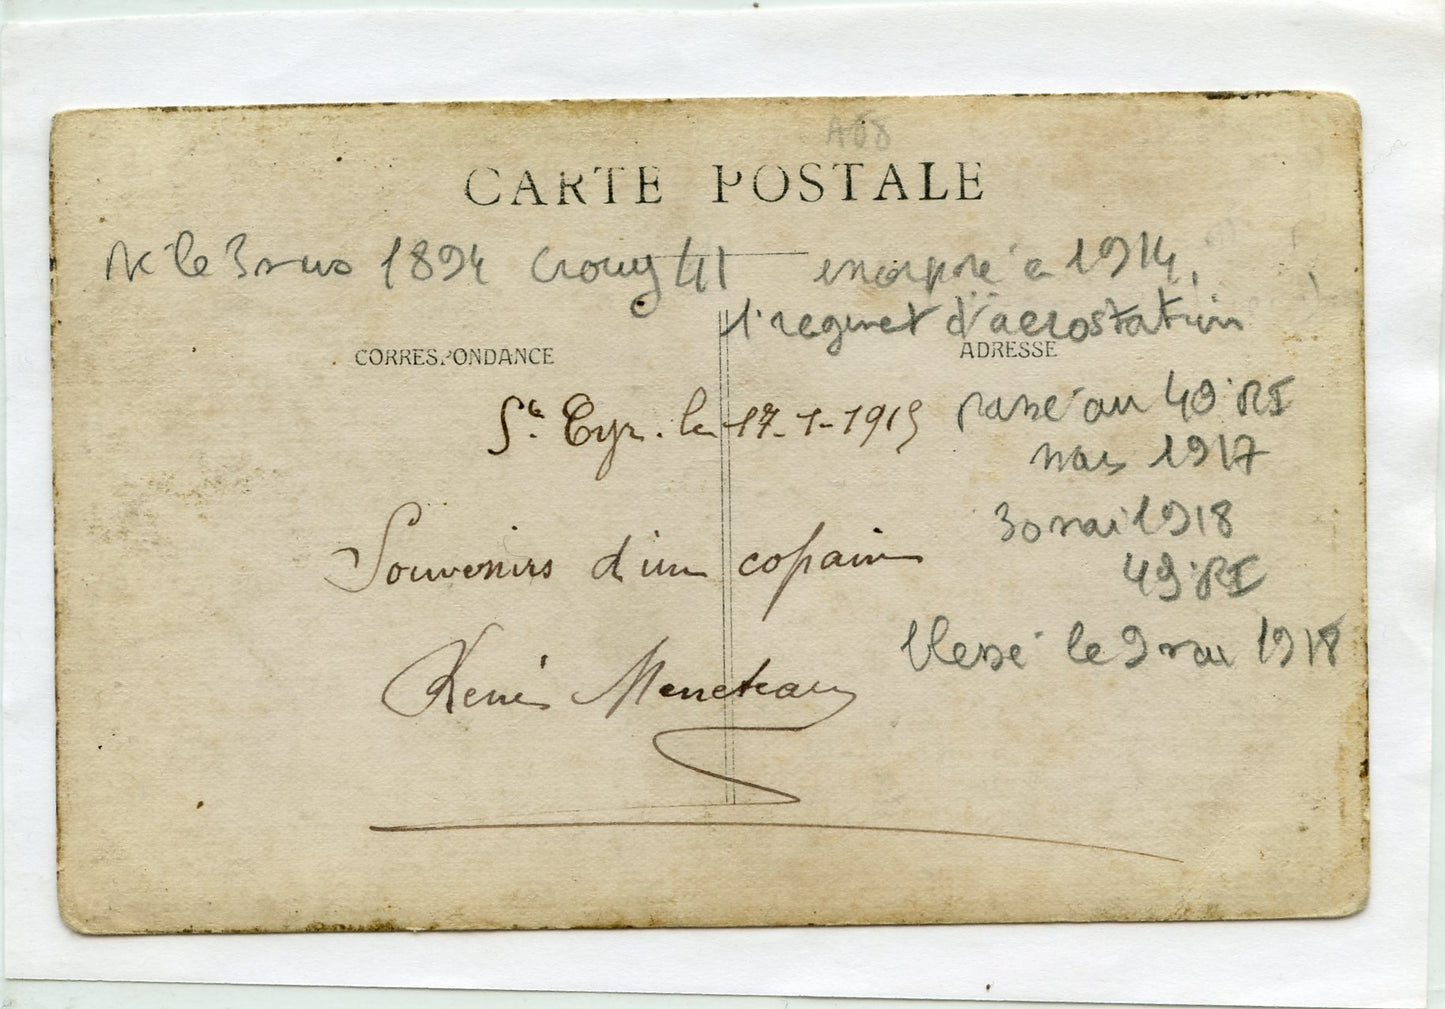 A68
CARTE POSTALE
Né le 3 mars 1894 Crouy 41 incorporé a 1914,
1° regimet d'aerostation
CORRESPONDANCE
ADRESSE
St. Cyr. le 17-1-1915
passé au 49° RI
mars 1917
Souvenirs d'un copain
30 mai 1918
49° RI
blessé le 9 mai 1918
René Meneteau